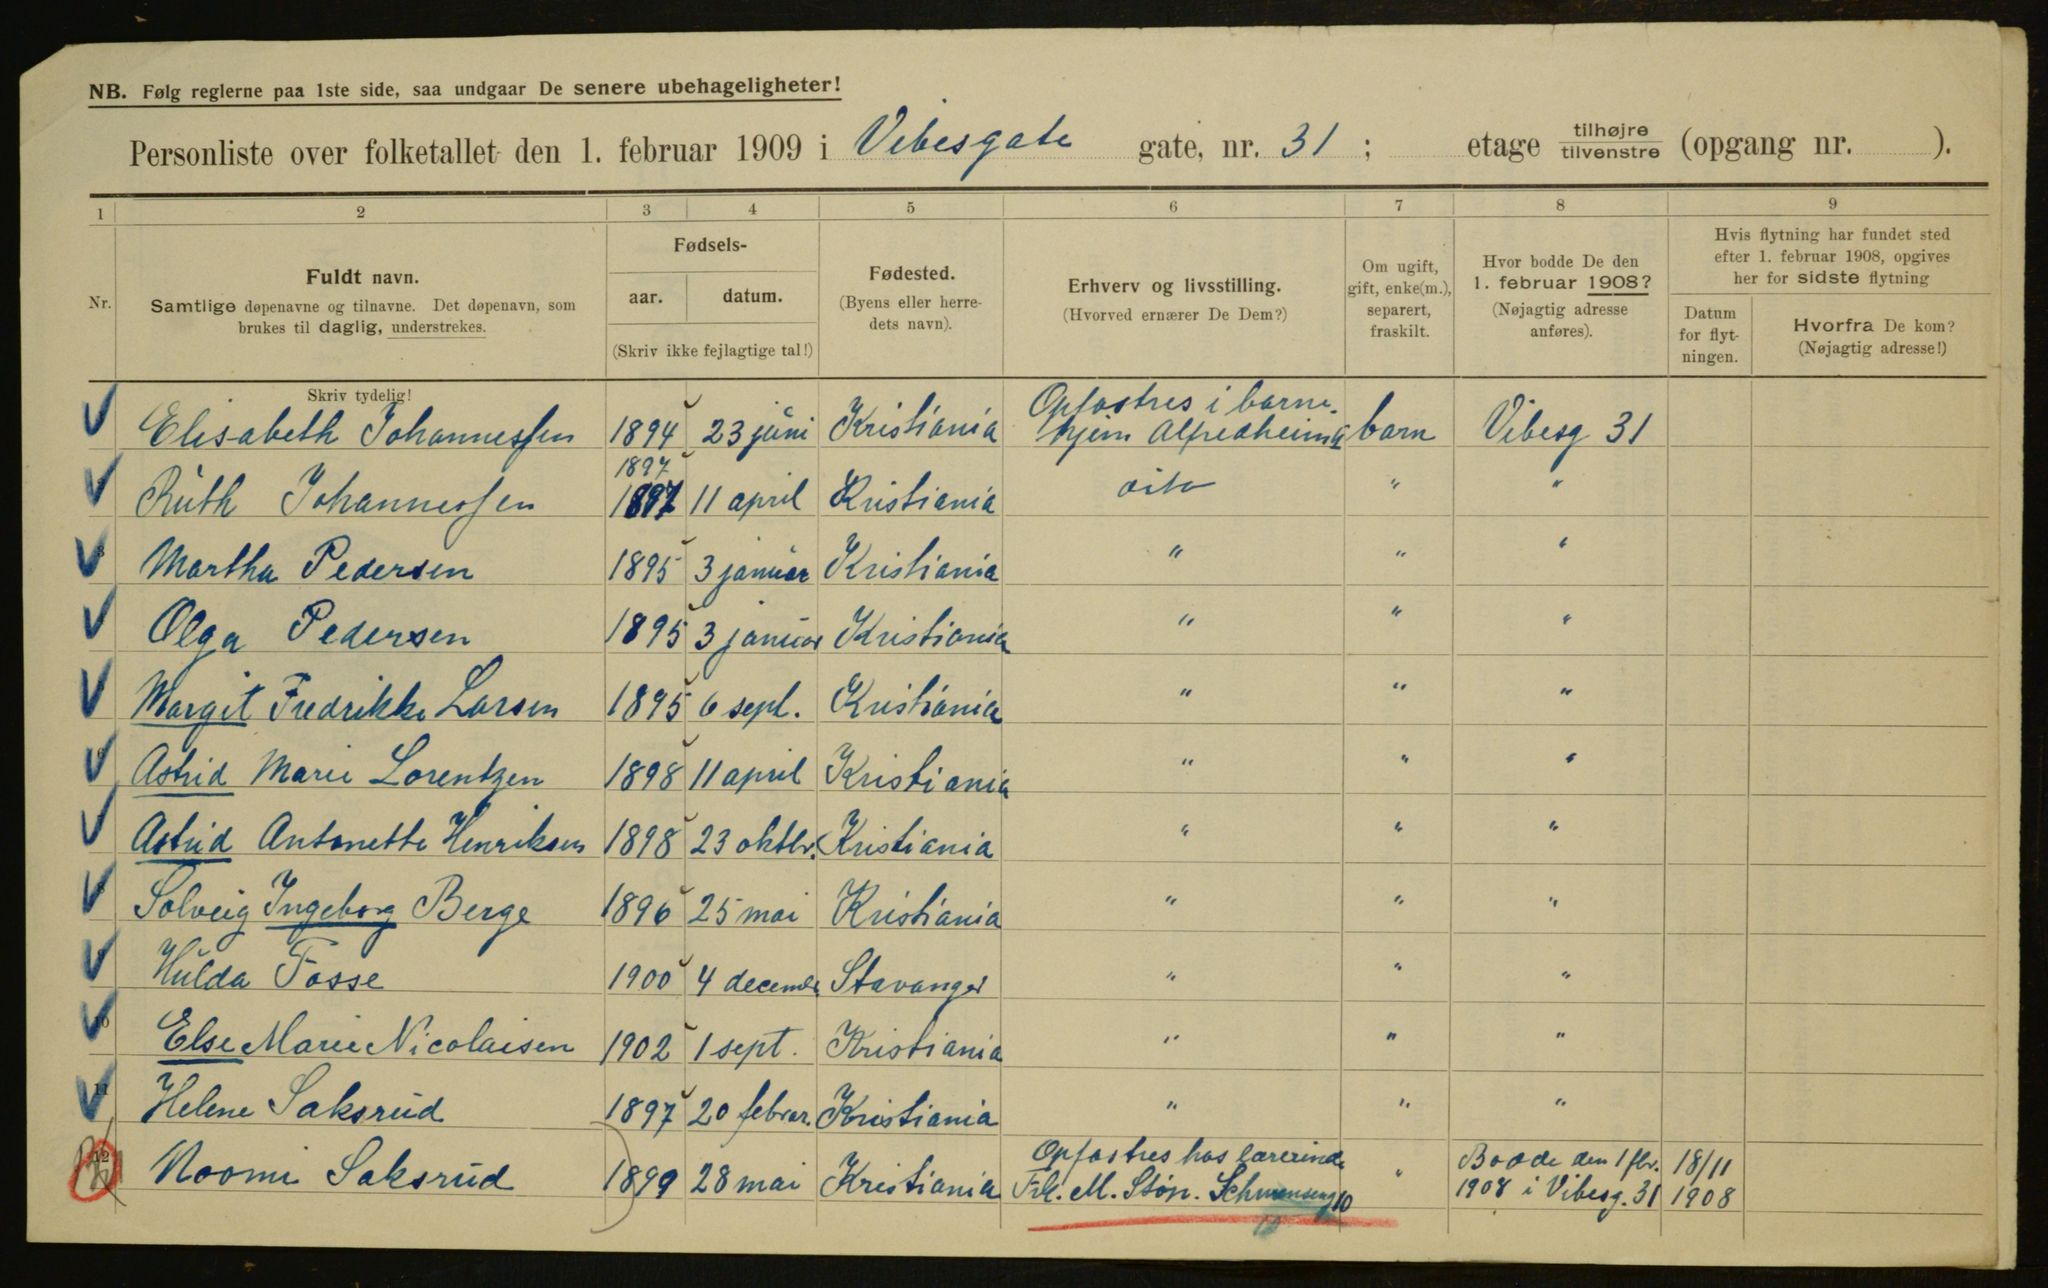 NB. Følg reglerne paa 1ste side, saa undgaar De senere ubehageligheter!
Personliste over folketallet den 1. februar 1909 i Vibesgate gate, nr. 31 ; etage tilhøjre tilvenstre (opgang nr. ).
1 2 3 4 5 6 7 8 9
Nr.
Fuldt navn.
Samtlige døpenavne og tilnavne. Det døpenavn, som
brukes til daglig, understrekes.
Fødsels-
aar. datum.
(Skriv ikke fejlagtige tal!)
Fødested.
(Byens eller herre-
dets navn).
Erhverv og livsstilling.
(Hvorved ernærer De Dem?)
Om ugift,
gift, enke(m.),
separert,
fraskilt.
Hvor bodde De den
1. februar 1908?
(Nøjagtig adresse
anføres).
Hvis flytning har fundet sted
efter 1. februar 1908, opgives
her for sidste flytning
Datum
for flyt-
ningen.
Hvorfra De kom?
(Nøjagtig adresse!)
Skriv tydelig!
Elisabeth Johannessen 1894 23 juni Kristiania Opfostres i barne-
hjem Alfredheim barn Vibesg 31
1897
Ruth Johannessen 1897 11 april Kristiania dito " "
3 Martha Pedersen 1895 3 januar Kristiania " " "
Olga Pedersen 1895 3 januar Kristiania " " "
Margit Fredrikke Larsen 1895 6 sept. Kristiania " " "
6 Astrid Marie Lorentzen 1898 11 april Kristiania " " "
Astrid Antonette Henriksen 1898 23 oktbr. Kristiania " " "
8 Solveig Ingeborg Berge 1896 25 mai Kristiania " " "
Hulda Fosse 1900 4 decembr Stavanger " " "
10 Else Marie Nicolaisen 1902 1 sept. Kristiania " " "
11 Helene Saksrud 1897 20 februar. Kristiania " " "
12 Noomi Saksrud 1899 28 mai Kristiania Opfostres hos lærerinde
Frk. M. Støp. 10 " Bodde den 1 fbr.
1908 i Vibesg. 31 18/11
1908